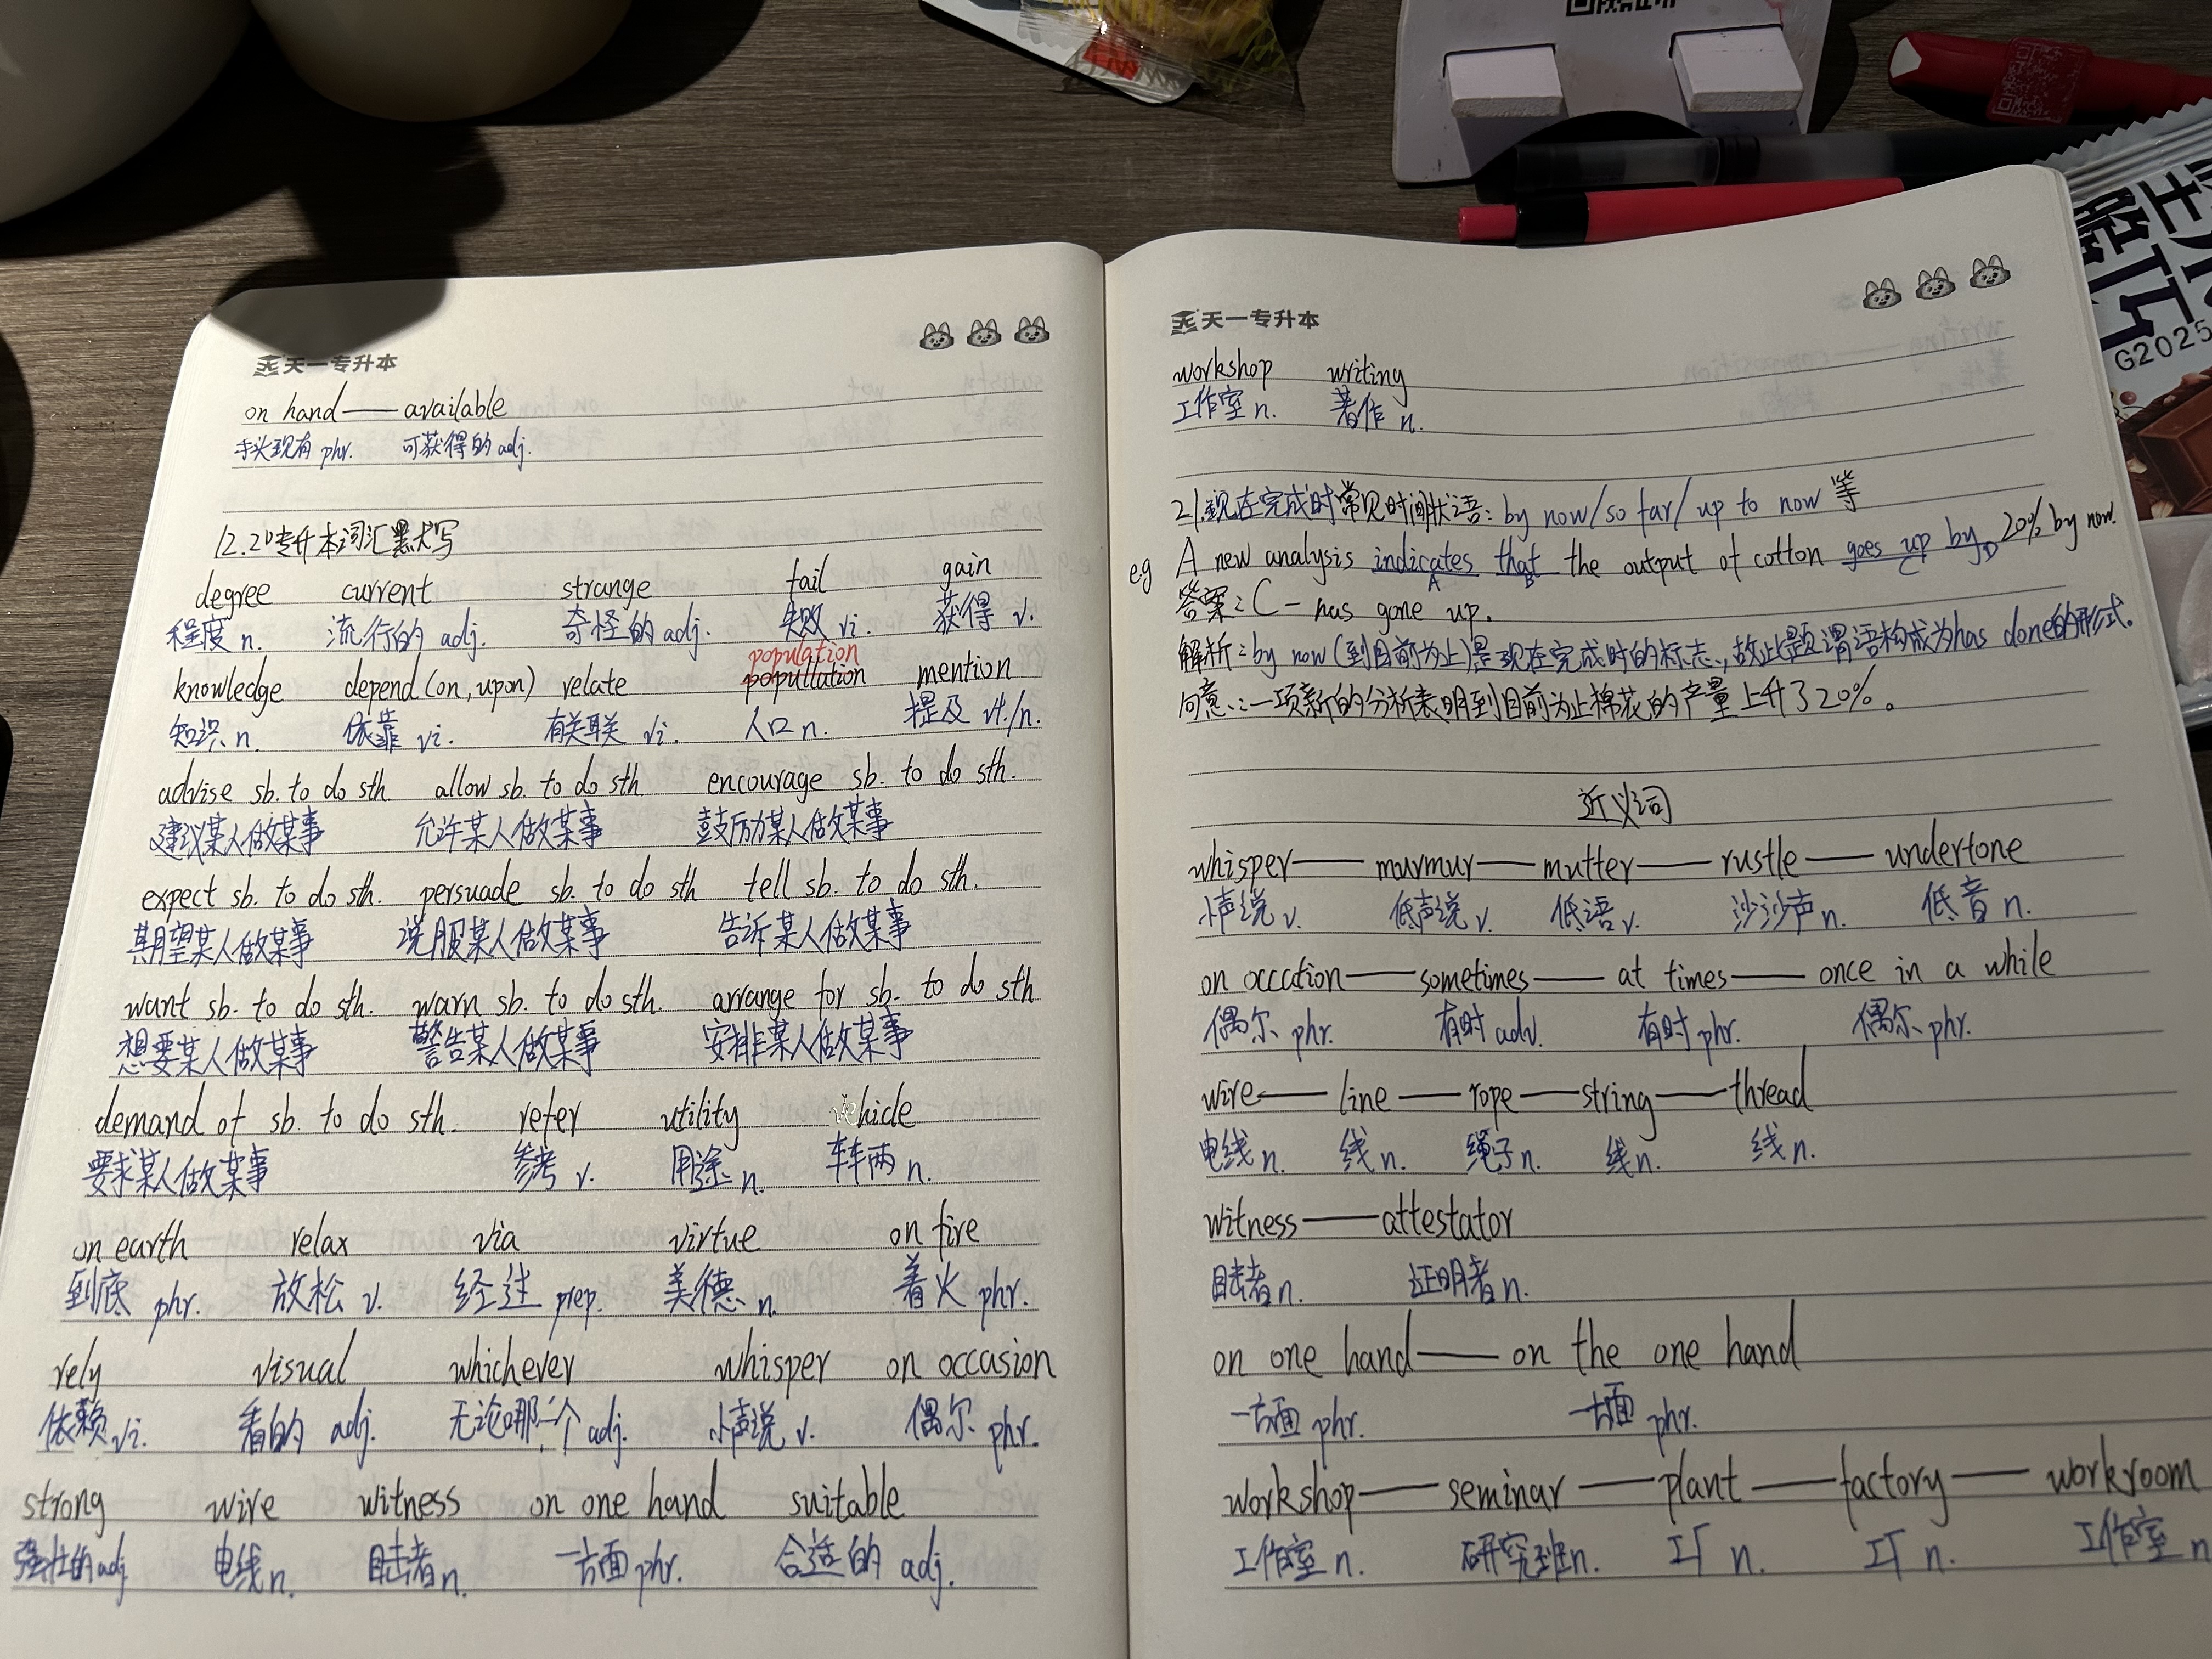 天一专升本
on hand — available
手头现有 phr. 可获得的 adj.
12.20专升本词汇默写
degree current strange fail gain
程度 n. 流行的 adj. 奇怪的 adj. 失败 vi. 获得 v.
population
knowledge depend (on, upon) relate mention
知识 n. 依靠 vi. 有关联 vi. 人口 n. 提及 vt./n.
advise sb. to do sth allow sb. to do sth encourage sb. to do sth.
建议某人做某事 允许某人做某事 鼓励某人做某事
expect sb. to do sth. persuade sb. to do sth tell sb. to do sth.
期望某人做某事 说服某人做某事 告诉某人做某事
want sb. to do sth. warn sb. to do sth. arrange for sb. to do sth
想要某人做某事 警告某人做某事 安排某人做某事
demand of sb. to do sth. refer utility vehicle
要求某人做某事 参考 v. 用途 n. 车辆 n.
on earth relax via virtue on fire
到底 phr. 放松 v. 经过 prep. 美德 n. 着火 phr.
rely visual whichever whisper on occasion
依赖 vi. 看的 adj. 无论哪一个 adj. 小声说 v. 偶尔 phr.
strong wire witness on one hand suitable
强壮的 adj. 电线 n. 目击者 n. 一方面 phr. 合适的 adj.
天一专升本
workshop writing
工作室 n. 著作 n.
21.现在完成时常见时间状语: by now/so far/ up to now 等
e.g A new analysis indicates that the output of cotton goes up by 20% by now.
A B C D
答案: C - has gone up.
解析: by now (到目前为止)是现在完成时的标志, 故此题谓语构成为has done的形式。
句意: 一项新的分析表明到目前为止棉花的产量上升了20%。
近义词
whisper — murmur — mutter — rustle — undertone
小声说 v. 低声说 v. 低语 v. 沙沙声 n. 低音 n.
on occation — sometimes — at times — once in a while
偶尔 phr. 有时 adv. 有时 phr. 偶尔 phr.
wire — line — rope — string — thread
电线 n. 线 n. 绳子 n. 线 n. 线 n.
witness — attestator
目击者 n. 证明者 n.
on one hand — on the one hand
一方面 phr. 一方面 phr.
workshop — seminar — plant — factory — workroom
工作室 n. 研究班 n. 工厂 n. 工厂 n. 工作室 n
G2025